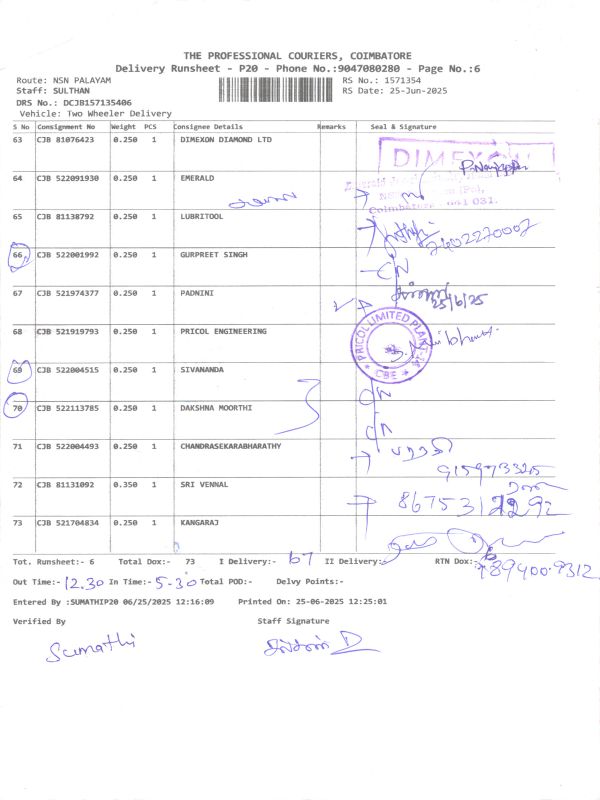 THE PROFESSIONAL COURIERS, COIMBATORE
Delivery Runsheet - P20 - Phone No.:9047080280 - Page No.:6
Route: NSN PALAYAM
RS No.: 1571354
Staff: SULTHAN
RS Date: 25-Jun-2025
DRS No.: DCJB157135406
Vehicle: Two Wheeler Delivery
S No Consignment No Weight PCS Consignee Details Remarks Seal & Signature
63 CJB 81076423 0.250 1 DIMEXON DIAMOND LTD
DIMEXON
64 CJB 522091930 0.250 1 EMERALD
Coimbatore - 641 031.
65 CJB 81138792 0.250 1 LUBRITOOL
66 CJB 522001992 0.250 1 GURPREET SINGH CN
67 CJB 521974377 0.250 1 PADNINI
25/6/25
68 CJB 521919793 0.250 1 PRICOL ENGINEERING
PRICOL LIMITED PLANT-1A
CBE
69 CJB 522004515 0.250 1 SIVANANDA CN
70 CJB 522113785 0.250 1 DAKSHNA MOORTHI CN
71 CJB 522004493 0.250 1 CHANDRASEKARABHARATHY
72 CJB 81131092 0.350 1 SRI VENNAL
73 CJB 521704834 0.250 1 KANGARAJ
Tot. Runsheet:- 6 Total Dox:- 73 I Delivery:- 67 II Delivery:- RTN Dox:-
Out Time:- 12.30 In Time:- 5-30 Total POD:- Delvy Points:-
Entered By :SUMATHIP20 06/25/2025 12:16:09 Printed On: 25-06-2025 12:25:01
Verified By Staff Signature
Sumathi